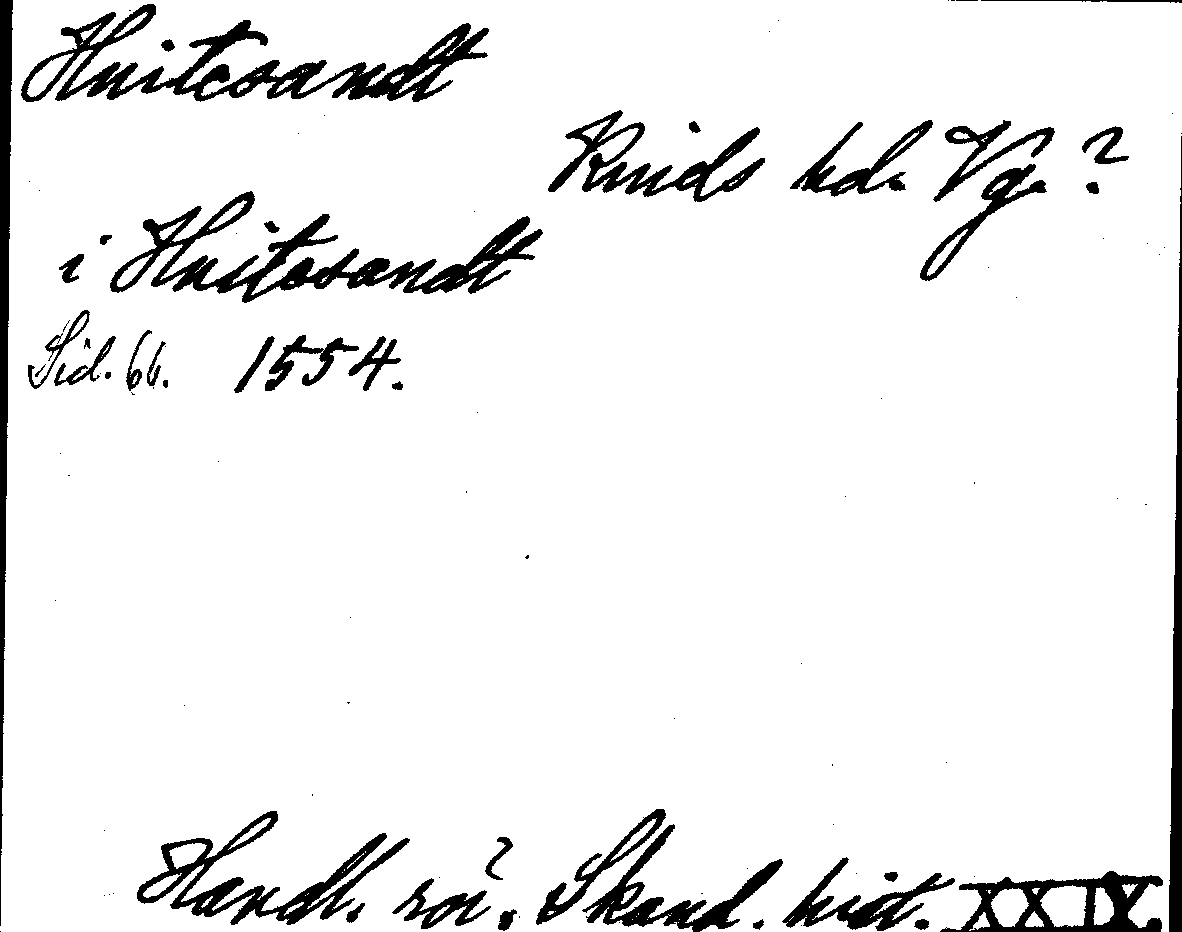 Hvitesandt
Kinds hd. Vg. ?
i Hvitesandt
Sid. 66. 1554.
Handl. rör. Skand. hist. XXIX.